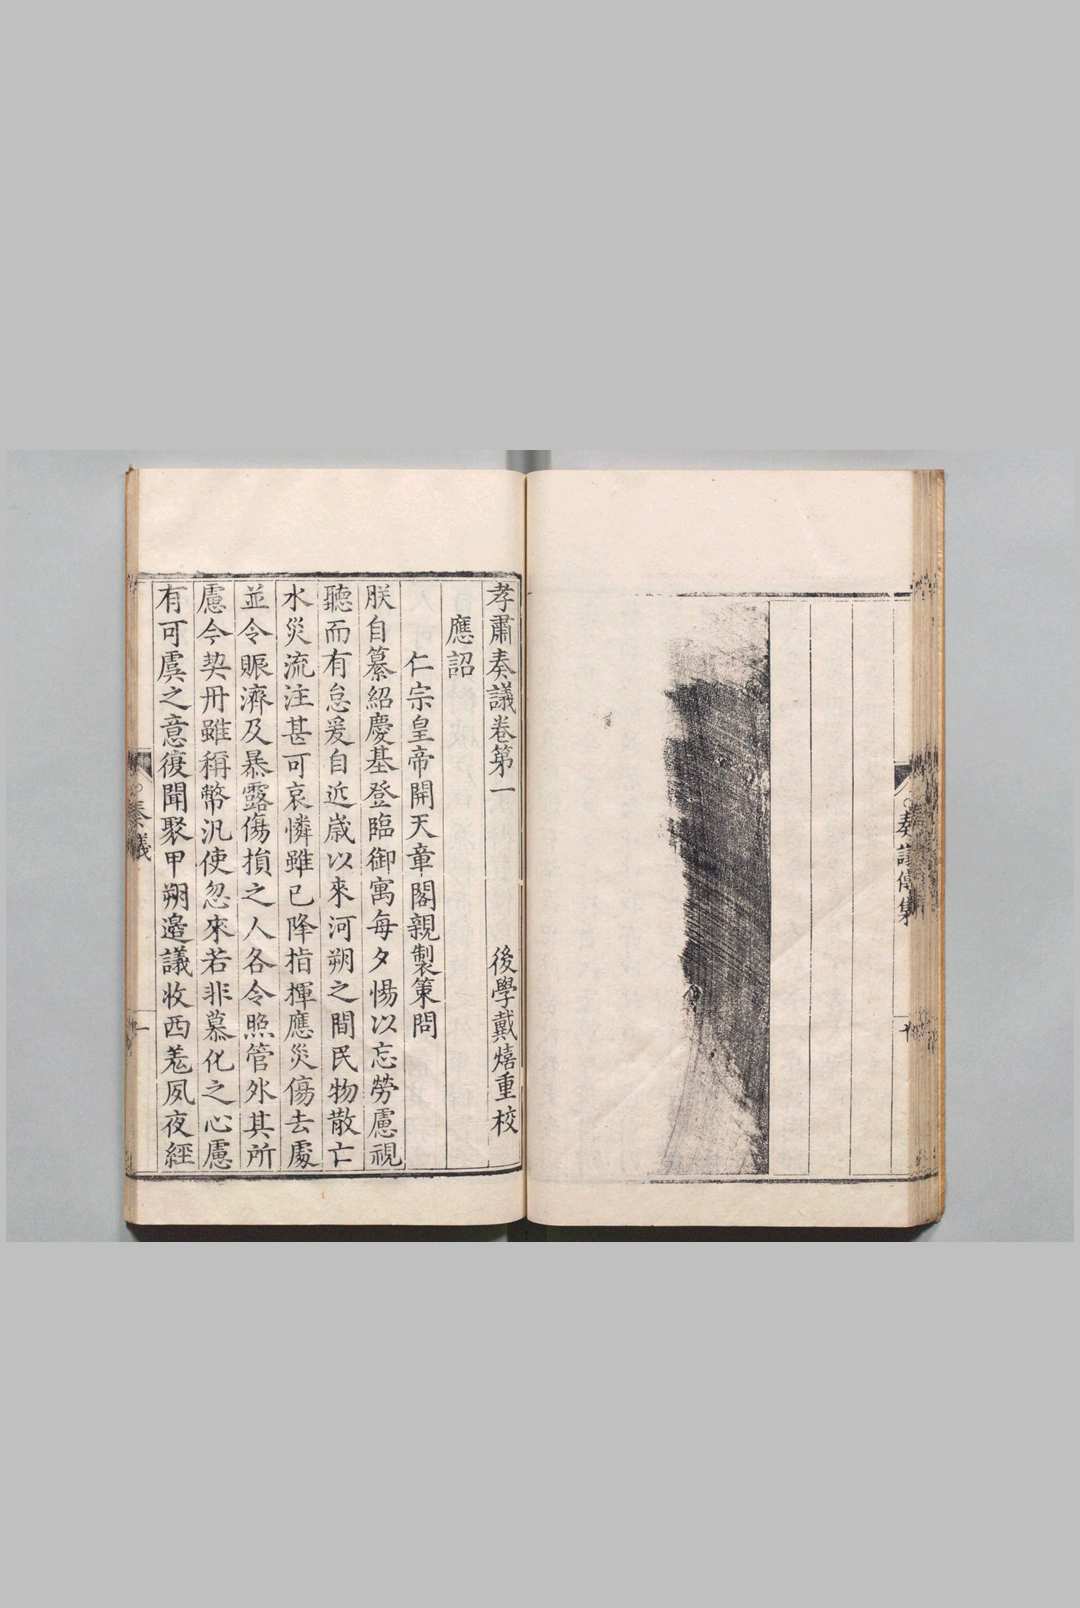 奏議傳集
孝肅奏議卷第一
後學戴熺重校
應詔
仁宗皇帝開天章閣親製策問
朕自纂紹慶基登臨御寓每夕惕以忘勞慮視
聽而有怠爰自近歲以來河朔之間民物散亡
水災流注甚可哀憐雖已降指揮應災傷去處
並令賑濟及暴露傷損之人各令照管外其所
慮今契丹雖稱幣汎使忽來若非慕化之心慮
有可虞之意復聞聚甲朔邉議收西羗夙夜經
奏議
一